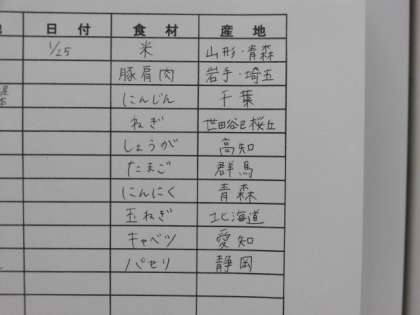 日 付 食 材 産 地
1/25 米 山形・青森
豚肩肉 岩手・埼玉
にんじん 千葉
ねぎ 世田谷区桜丘
しょうが 高知
たまご 群馬
にんにく 青森
玉ねぎ 北海道
キャベツ 愛知
パセリ 静岡